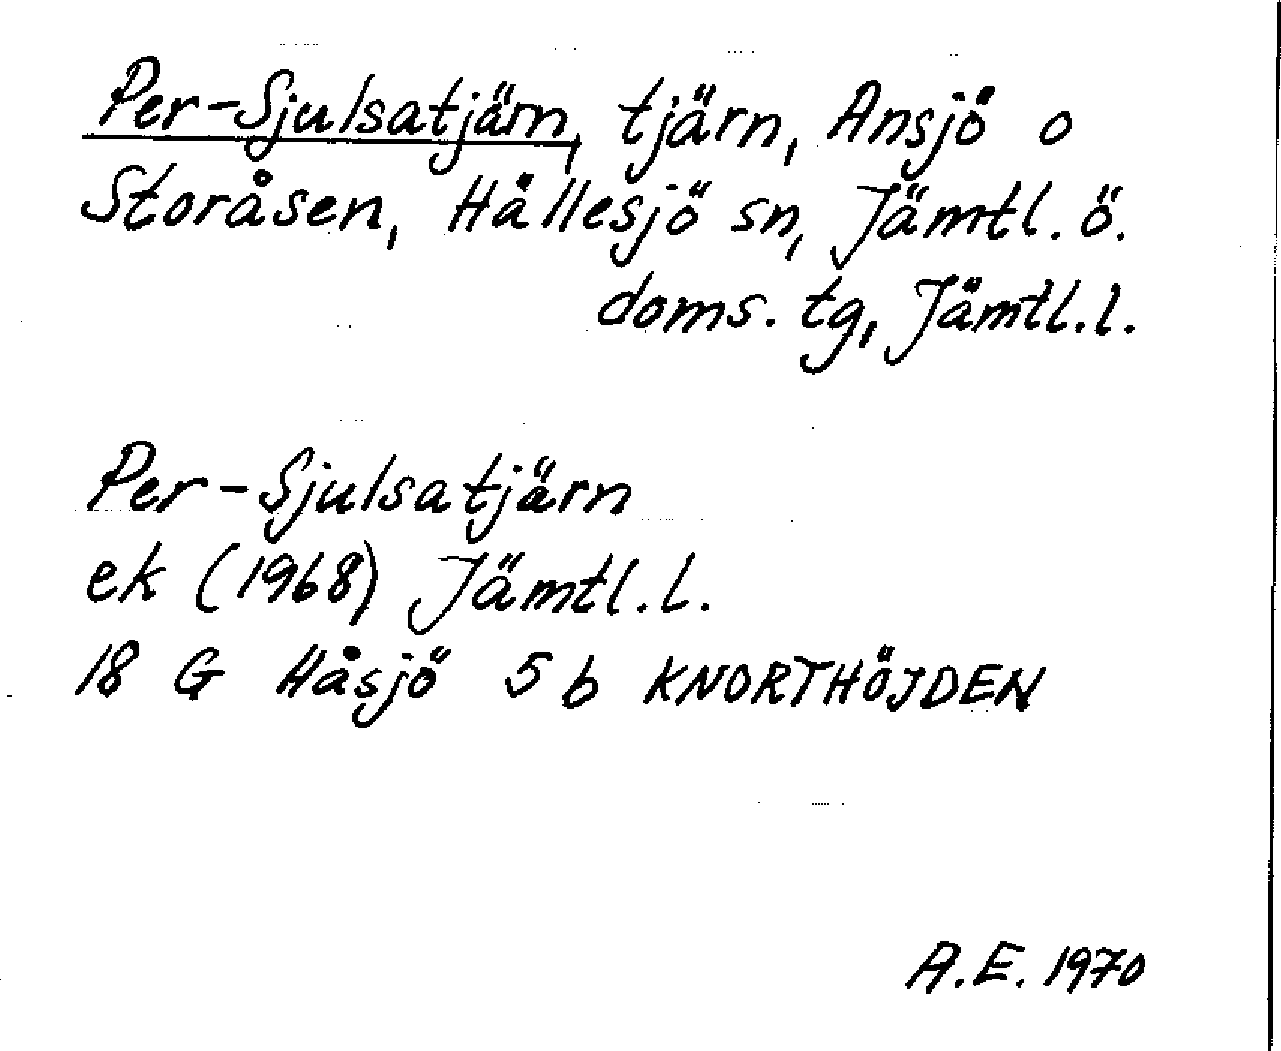 Per-Sjulsatjärn, tjärn, Ansjö o
Storåsen, Hällesjö sn, Jämtl. ö.
doms. tg, Jämtl.l.
Per-Sjulsatjärn
ek (1968) Jämtl.l.
18 G Håsjö 5 b KNORTHÖJDEN
A.E. 1970